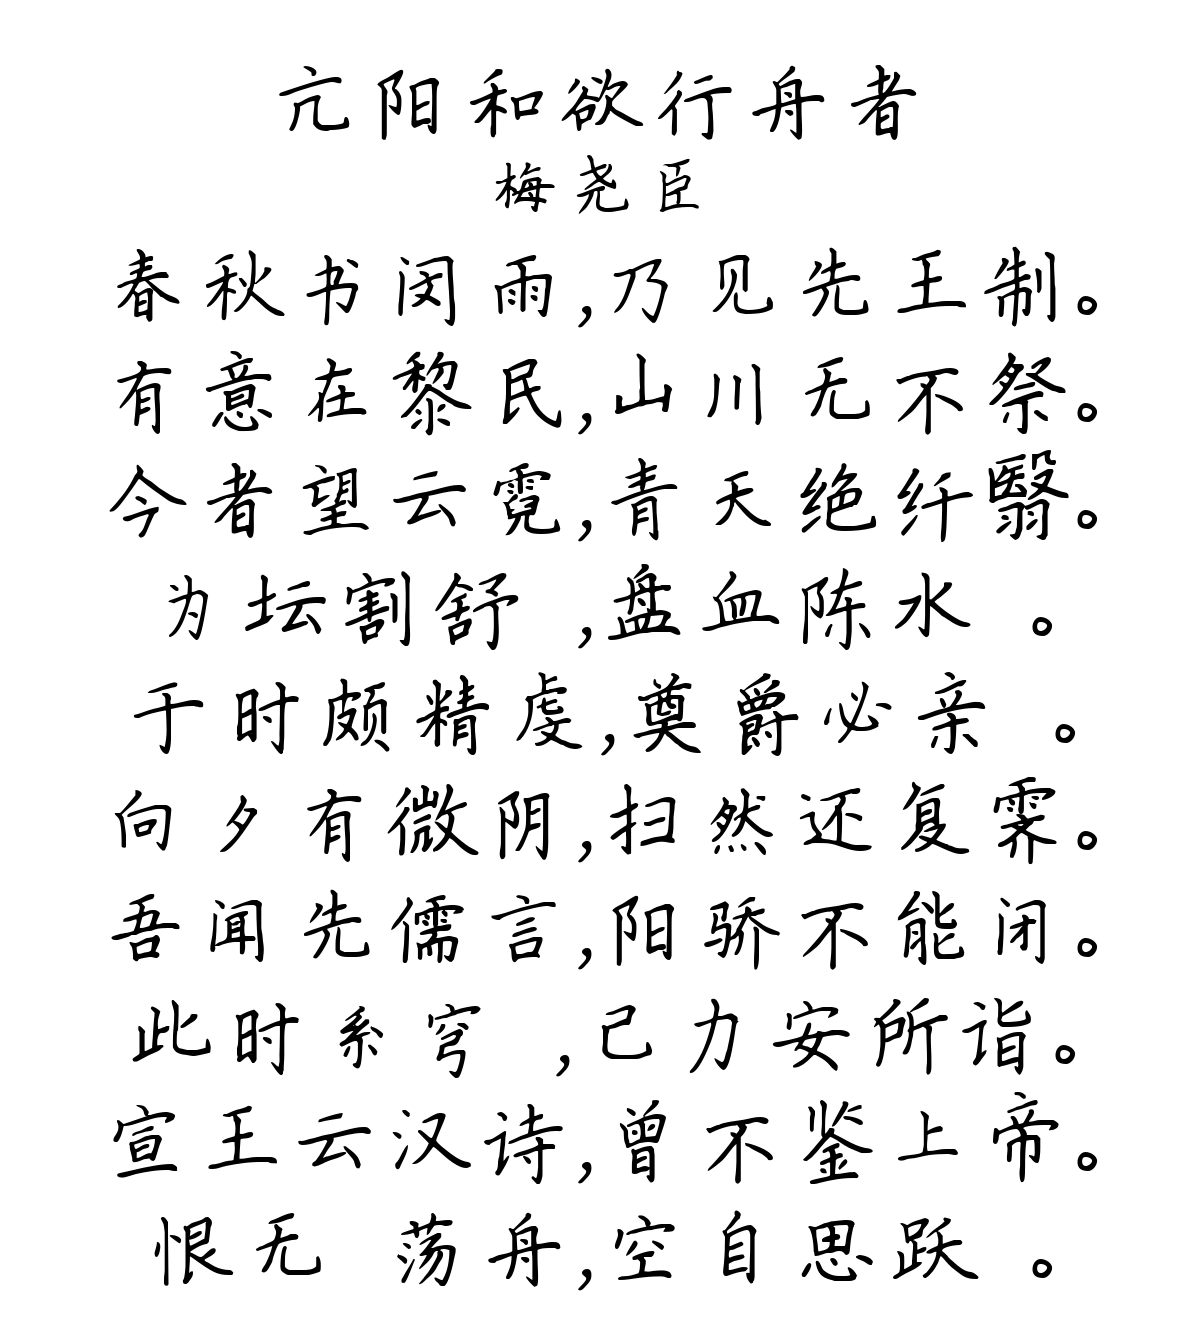 亢阳和欲行舟者
梅尧臣
春秋书闵雨,乃见先王制。
有意在黎民,山川无不祭。
今者望云霓,青天绝纤翳。
为坛割舒 ,盘血陈水 。
于时颇精虔,奠爵必亲 。
向夕有微阴,扫然还复霁。
吾闻先儒言,阳骄不能闭。
此时系穹 ,己力安所诣。
宣王云汉诗,曾不鉴上帝。
恨无 荡舟,空自思跃 。